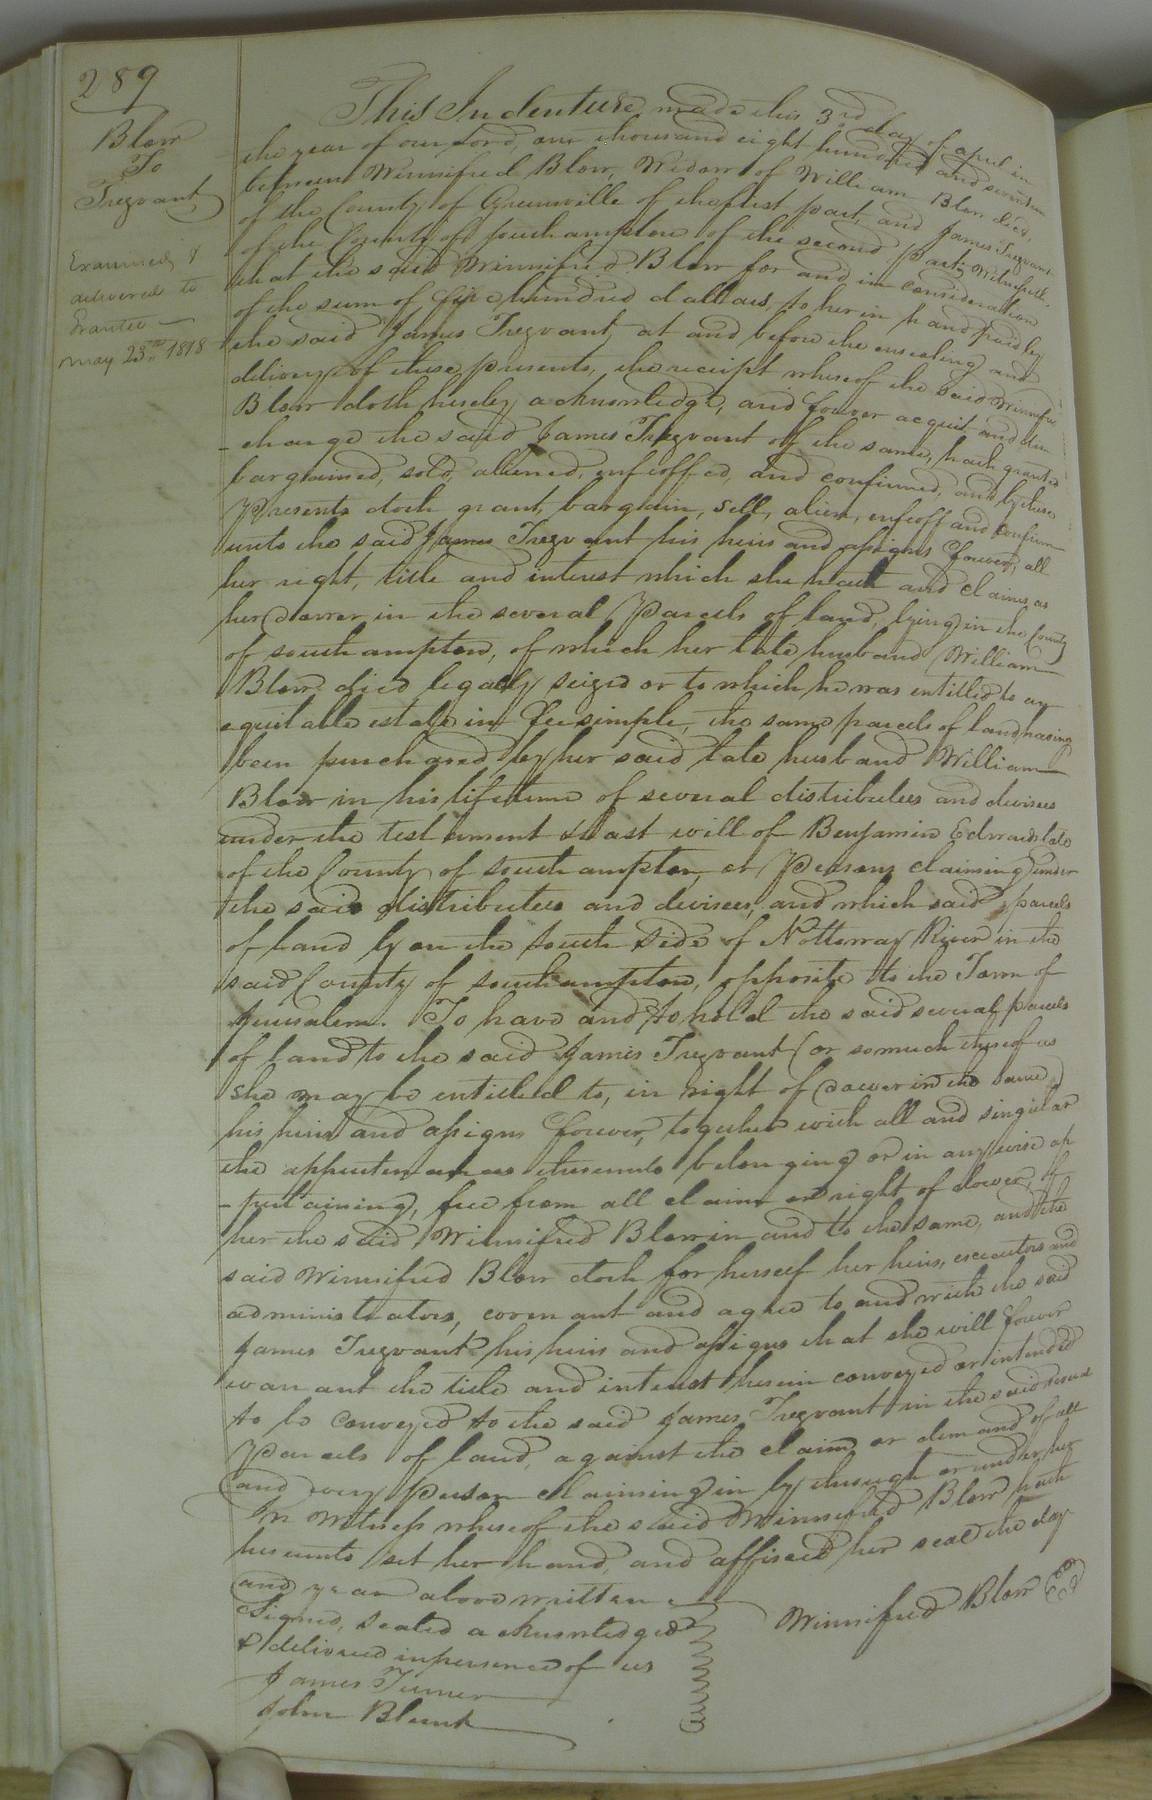 289
Blow
To
Trezvant
Examined &
delivered to
Grantee
May 23rd 1818
This Indenture made this 3rd day of april in
the year of our Lord, one thousand eight hundred and seventeen
between Winnifred Blow, Widow of William Blow decd,
of the County of Greenville of the first part, and James Trezvant
of the County of southampton of the second part, Witnesseth,
that the said Winnifred Blow for and in consideration
of the sum of five hundred dollars, to her in hand paid by
the said James Trezvant, at and before the ensealing and
delivery of these presents, the receipt whereof the said Winnifred
Blow doth hereby acknowledge, and forever acquit and dis
-charge the said James Trezvant of the same, hath granted
bargained, sold, aliened, enfeoffed, and confirmed, and by these
Presents doth grant, bargain, sell, alien, enfeoff and confirm
unto the said James Trezvant his heirs and assigns forever, all
her right, title and interest which she hath and claims as
her dower in the several Parcels of land, lying in the County
of southampton, of which her late husband William
Blow died legally seized or to which he was entitled to an
equitable estate in fee simple, the same parcels of land having
been purchased by her said late husband William
Blow in his lifetime of several distributees and devisees
under the testament & last will of Benjamin Edwards late
of the County of southampton, or Persons claiming under
the said distributees and devisees, and which said parcels
of land ly on the South Side of Nottoway River in the
said County of southampton, opposite to the Town of
Jerusalem. To have and to hold the said several parcels
of land to the said James Trezvant (or so much thereof as
she may be entitled to, in right of dower in the same)
his heirs and assigns forever, together with all and singular
the appurtenances thereunto belonging or in any wise ap
-pertaining, free from all claim or right of dower, of
her the said Winnifred Blow in and to the same, and the
said Winnifred Blow doth for herself her heirs, executors and
administrators, covenant and agree to and with the said
James Trezvant his heirs and assigns that she will forever
warrant the title and interest herein conveyed or intended
to be conveyed to the said James Trezvant in the said several
Parcels of land, against the claim or demand of all
and every person claiming in by through or under her
In Witness whereof the said Winnifred Blow hath
hereunto set her hand, and affixed her seal the day
and year above written
Signed, sealed acknowledged
& delivered in presence of us
Winnifred Blow
James Turner
John Blunt